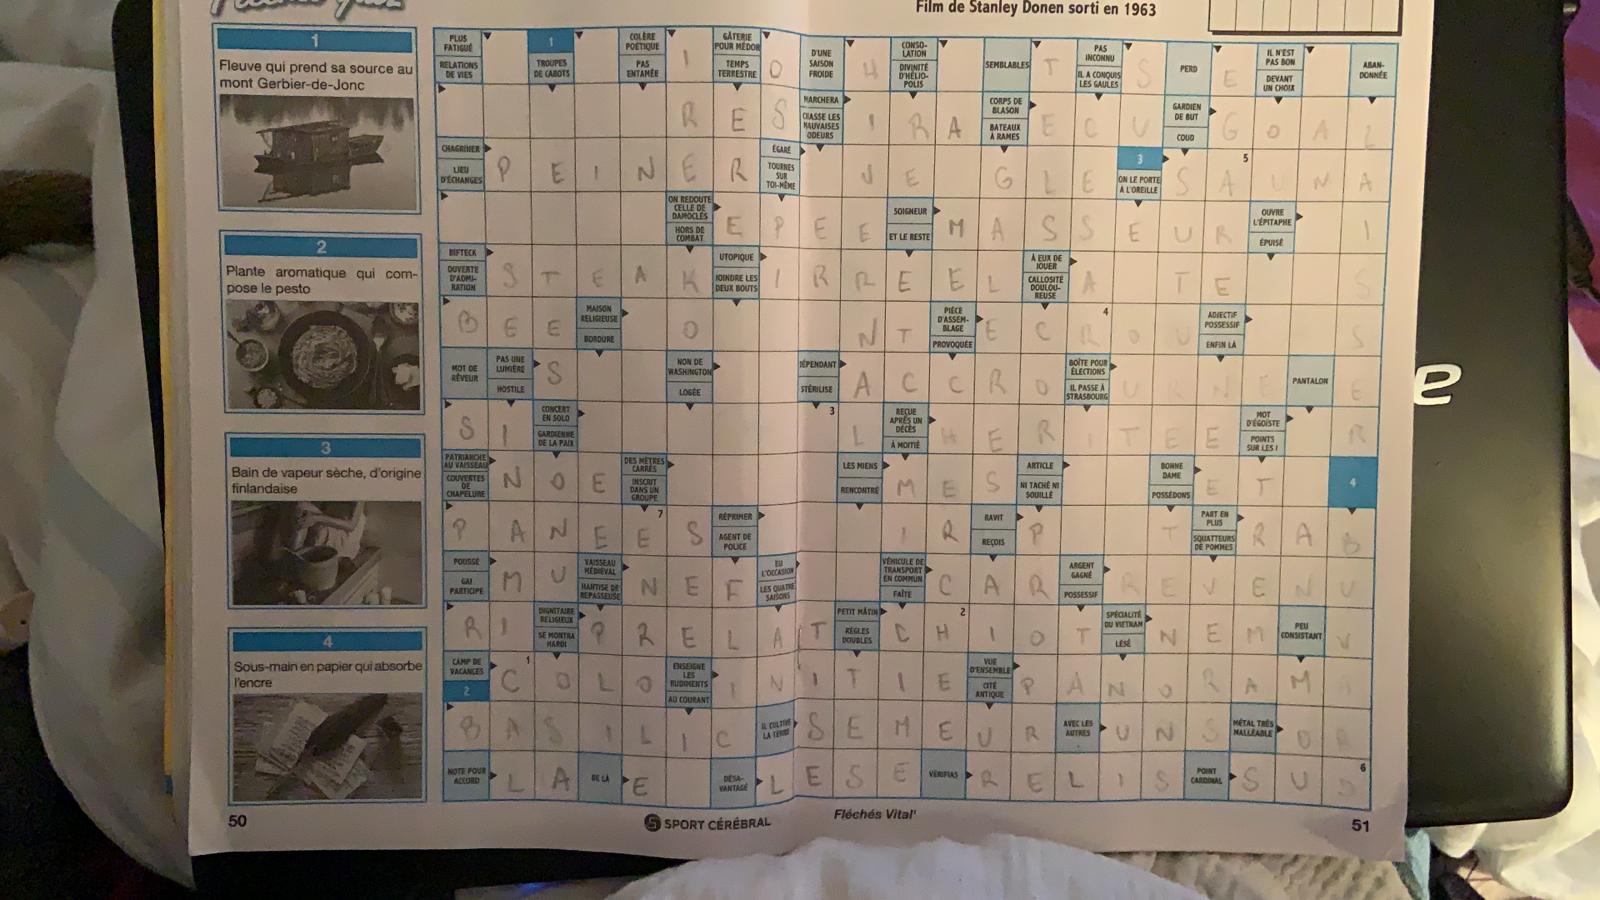 Film de Stanley Donen sorti en 1963
1
Fleuve qui prend sa source au
mont Gerbier-de-Jonc
2
Plante aromatique qui com-
pose le pesto
3
Bain de vapeur sèche, d'origine
finlandaise
4
Sous-main en papier qui absorbe
l'encre
PLUS FATIGUÉ
RELATIONS DE VIES
1
TROUPES DE CABOTS
COLÈRE POÉTIQUE
PAS ENTAMÉE
I
GÂTERIE POUR MÉDOR
TEMPS TERRESTRE
O
D'UNE SAISON FROIDE
H
CONSO-LATION
DIVINITÉ D'HÉLIO-POLIS
SEMBLABLES
T
PAS INCONNU
IL A CONQUIS LES GAULES
S
PERD
E
IL N'EST PAS BON
DEVANT UN CHOIX
ABAN-DONNÉE
R E S
MARCHERA
CHASSE LES MAUVAISES ODEURS
I R A
CORPS DE BLASON
BATEAUX À RAMES
E C U
GARDIEN DE BUT
COUD
G O A L
CHAGRINER
LIEU D'ÉCHANGES
P E I N E R
ÉGARÉ
TOURNES SUR TOI-MÊME
V E G L E
3
ON LE PORTE À L'OREILLE
S A U N A
5
ON REDOUTE CELLE DE DAMOCLÈS
HORS DE COMBAT
E P E E
SOIGNEUR
ET LE RESTE
M A S S E U R
OUVRE L'ÉPITAPHE
ÉPUISÉ
I
BIFTECK
OUVERTE D'ADMI-RATION
S T E A K
UTOPIQUE
JOINDRE LES DEUX BOUTS
I R R E E L
À EUX DE JOUER
CALLOSITÉ DOULOU-REUSE
A T E S
B E E
MAISON RELIGIEUSE
BORDURE
O N T
PIÈCE D'ASSEM-BLAGE
PROVOQUÉE
E C R O U
4
ADJECTIF POSSESSIF
ENFIN LÀ
S
MOT DE RÊVEUR
PAS UNE LUMIÈRE
HOSTILE
S
NON DE WASHINGTON
LOGÉE
DÉPENDANT
STÉRILISE
A C C R O
BOÎTE POUR ÉLECTIONS
IL PASSE À STRASBOURG
U R N E
PANTALON
E
S I
CONCERT EN SOLO
GARDIENNE DE LA PAIX
3
L
REÇUE APRÈS UN DÉCÈS
À MOITIÉ
H E R I T E E
MOT D'ÉGOÏSTE
POINTS SUR LES I
R
PATRIARCHE AU VAISSEAU
COUVERTES DE CHAPELURE
N O E
DES MÈTRES CARRÉS
INSCRIT DANS UN GROUPE
LES MIENS
RENCONTRÉ
M E S
ARTICLE
NI TACHÉ NI SOUILLÉ
BONNE DAME
POSSÉDONS
E T
4
P A N E E S
7
RÉPRIMER
AGENT DE POLICE
I R
RAVIT
REÇOIS
P T
PART EN PLUS
SQUATTEURS DE POMMES
R A B
POUSSÉ
GAI PARTICIPE
M U
VAISSEAU MÉDIÉVAL
HANTISE DE REPASSEUSE
N E F
EU L'OCCASION
LES QUATRE SAISONS
VÉHICULE DE TRANSPORT EN COMMUN
FAÎTE
C A R
ARGENT GAGNÉ
POSSESSIF
R E V E N U
R I
DIGNITAIRE RELIGIEUX
SE MONTRA HARDI
P R E L A T
PETIT MÂTIN
RÈGLES DOUBLES
C H I O T
2
SPÉCIALITÉ DU VIETNAM
LÉSÉ
N E M
PEU CONSISTANT
V
CAMP DE VACANCES
2
C O L O
1
ENSEIGNE LES RUDIMENTS
AU COURANT
I N I T I E
VUE D'ENSEMBLE
CITÉ ANTIQUE
P A N O R A M A
B A S I L I C
IL CULTIVE LA TERRE
S E M E U R
AVEC LES AUTRES
U N S
MÉTAL TRÈS MALLÉABLE
O R
NOTE POUR ACCORD
L A
DE LA
E
DÉSA-VANTAGE
L E S E
VÉRIFIAS
R E L I S
POINT CARDINAL
S U D
6
50
SPORT CÉRÉBRAL
Fléchés Vital'
51